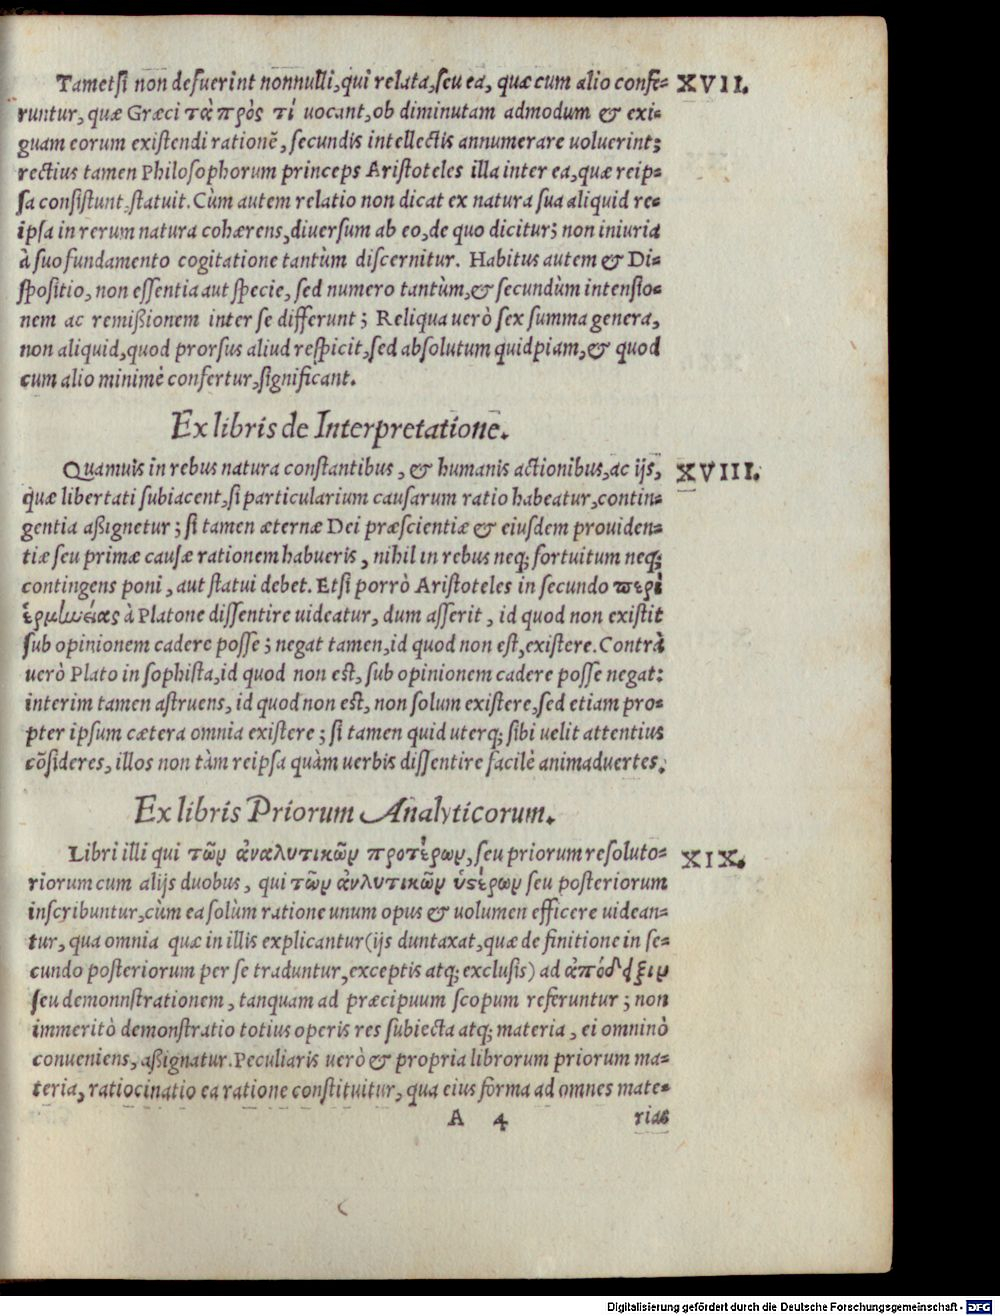 Tametsi non defuerint nonnulli, qui relata, seu ea, quæ cum alio confe- XVII.
runtur, quæ Græci τὰ πρός τί uocant, ob diminutam admodum & exi-
guam eorum existendi rationẽ, secundis intellectis annumerare uoluerint;
rectius tamen Philosophorum princeps Aristoteles illa inter ea, quæ reip-
sa consistunt, statuit. Cùm autem relatio non dicat ex natura sua aliquid re-
ipsa in rerum natura cohærens, diuersum ab eo, de quo dicitur; non iniuria
à suo fundamento cogitatione tantùm discernitur. Habitus autem & Di-
spositio, non essentia aut specie, sed numero tantùm, & secundùm intensio-
nem ac remißionem inter se differunt; Reliqua uerò sex summa genera,
non aliquid, quod prorsus aliud respicit, sed absolutum quidpiam, & quod
cum alio minimè confertur, significant.
Ex libris de Interpretatione.
Quamuis in rebus natura constantibus, & humanis actionibus, ac ijs, XVIII.
quæ libertati subiacent, si particularium causarum ratio habeatur, contin-
gentia aßignetur; si tamen æternæ Dei præscientiæ & eiusdem prouiden-
tiæ seu primæ causæ rationem habueris, nihil in rebus neq; fortuitum neq;
contingens poni, aut statui debet. Etsi porrò Aristoteles in secundo περὶ
ἑρμηνείας à Platone dissentire uideatur, dum asserit, id quod non existit
sub opinionem cadere posse; negat tamen, id quod non est, existere. Contrà
uerò Plato in sophista, id quod non est, sub opinionem cadere posse negat:
interim tamen astruens, id quod non est, non solum existere, sed etiam pro-
pter ipsum cætera omnia existere; si tamen quid uterq; sibi uelit attentius
cõsideres, illos non tàm reipsa quàm uerbis dissentire facilè animaduertes.
Ex libris Priorum Analyticorum.
Libri illi qui τῶν ἀναλυτικῶν προτέρων, seu priorum resoluto- XIX.
riorum cum alijs duobus, qui τῶν ἀνλυτικῶν ὑστέρων seu posteriorum
inscribuntur, cùm ea solùm ratione unum opus & uolumen efficere uidean-
tur, qua omnia quæ in illis explicantur (ijs duntaxat, quæ de finitione in se-
cundo posteriorum per se traduntur, exceptis atq; exclusis) ad ἀπόδειξιν
seu demonnstrationem, tanquam ad præcipuum scopum referuntur; non
immeritò demonstratio totius operis res subiecta atq; materia, ei omninò
conueniens, aßignatur. Peculiaris uerò & propria librorum priorum ma-
teria, ratiocinatio ea ratione constituitur, qua eius forma ad omnes mate-
A 4 rias
Digitalisierung gefördert durch die Deutsche Forschungsgemeinschaft - DFG